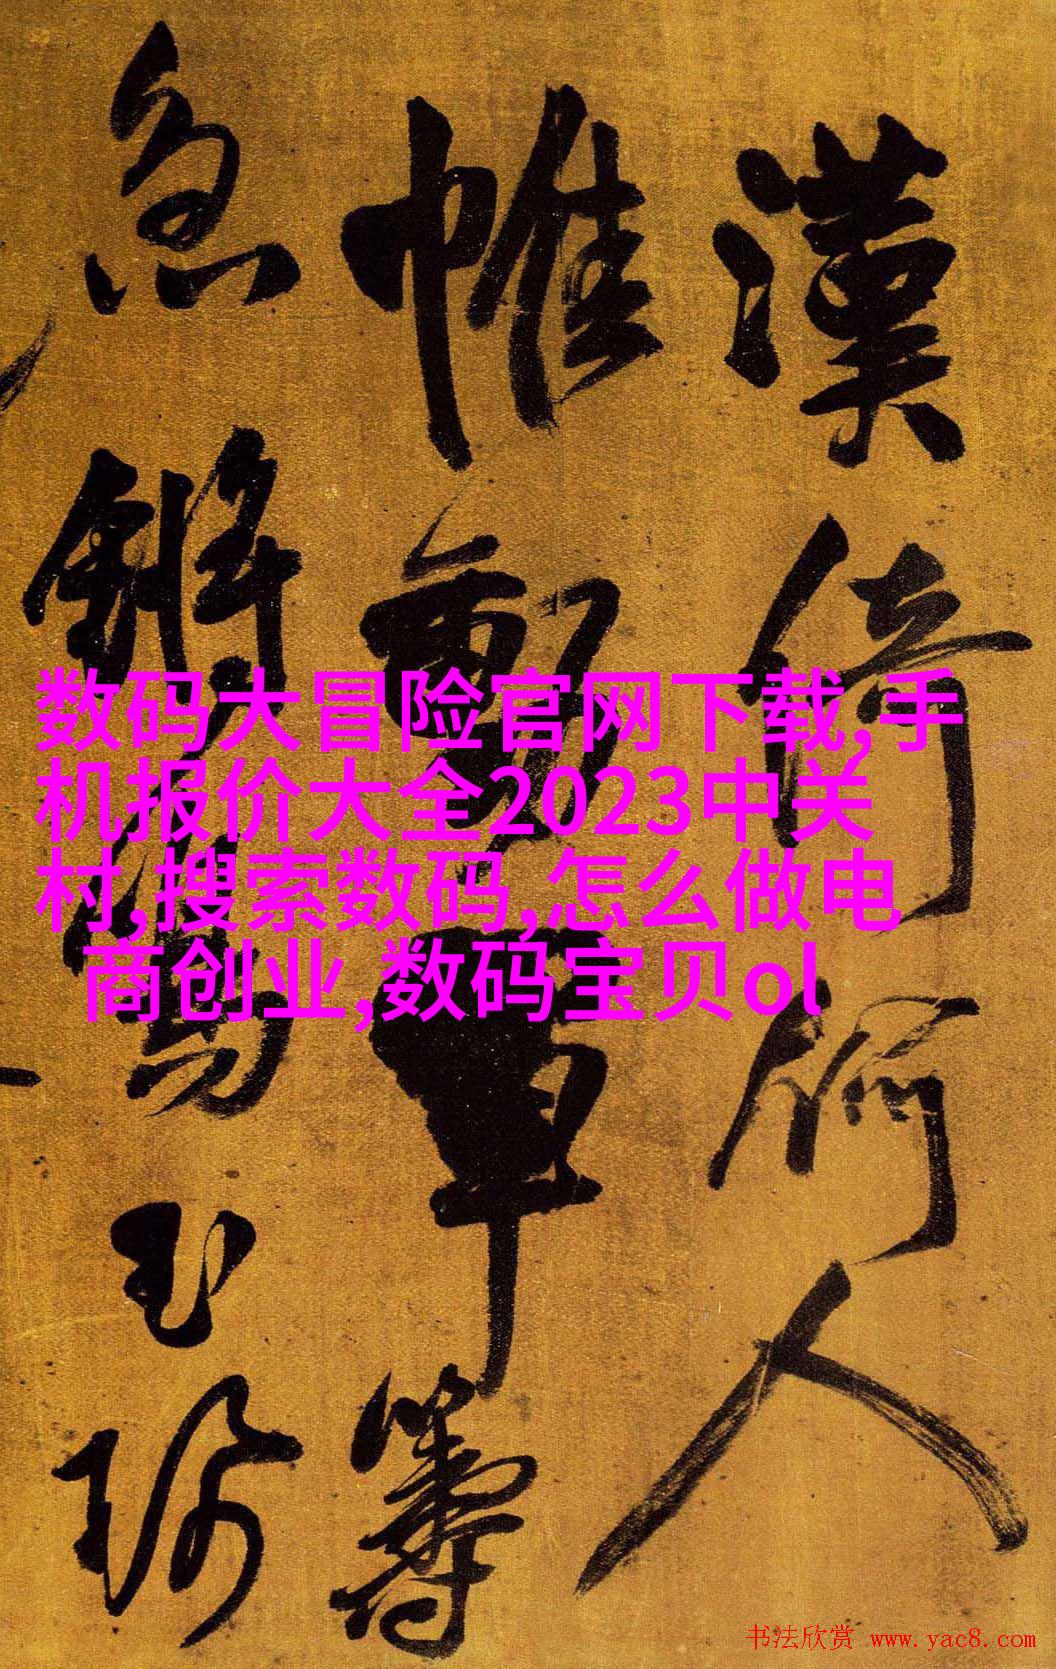 漢倚人
帷軍籌
急鏘鳴玉
数码大冒险官网下载,手
机报价大全2023中关
村,搜索数码,怎么做电
商创业,数码宝贝ol
书法欣赏 www.yac8.com